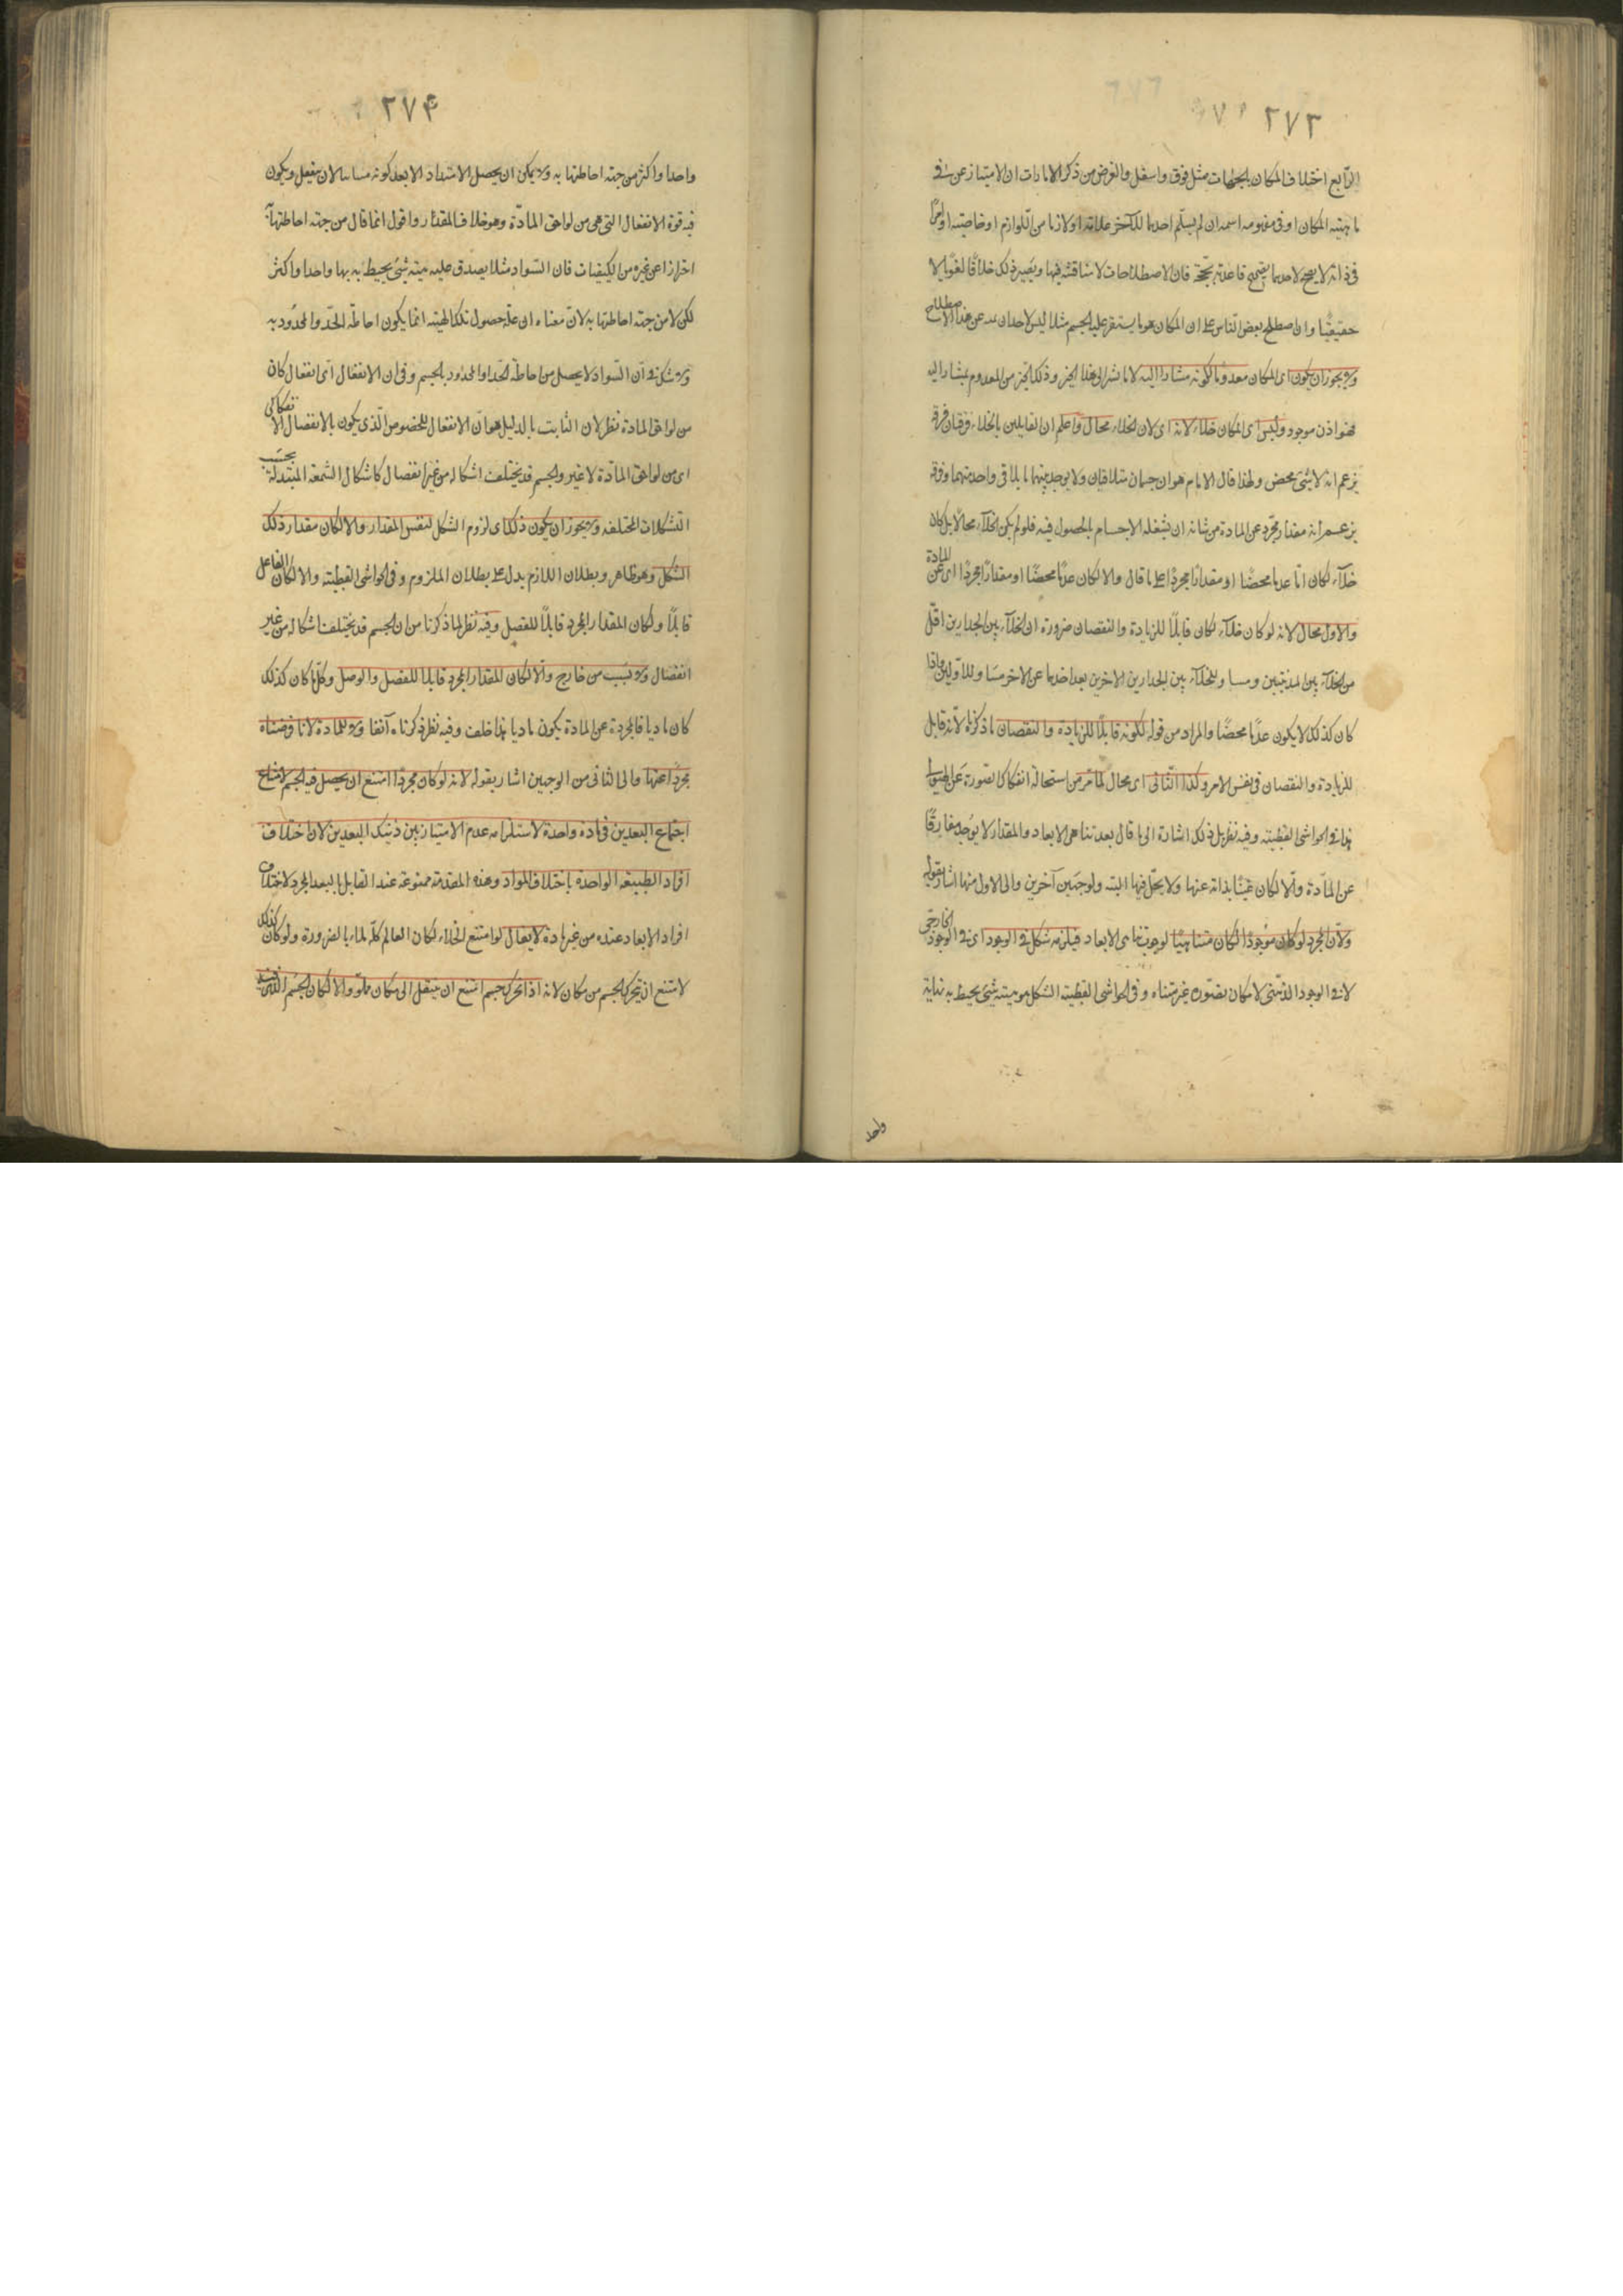 ٢٧٣
الرابع اختلاف المكان بالجهات مثل فوق واسفل والغرض من ذكر الامارات ان الامتياز عن
ماهيته المكان او فى مفهومه اسمه ان لم يسلم احدهما للآخر علاته او لازما من اللوازم او خاصيته او
فى ذاته لا يصح لاحدهما فان الاصطلاحات لا مناقشة فيها ويصير ذلك خلافا لغويا لا
حقيقيا وان اصطلح بعض الناس على ان المكان هو ما يستقر عليه الجسم مثلا ليس لاحد ان عن هذا الاصطلاح
ولا يجوز ان يكون اى المكان معدوما لكونه مشارا اليه لانا نشير الى هذا الحيز وذلك الحيز من المعدوم بمشار اليه
فهو اذن موجود وليس اى المكان خلاء لانه اى لان الخلاء محال واعلم ان القايلين بالخلاء فرقتان فرقة
يزعم انه لا شئ محض ولهذا قال الامام هو ان جسمان متلاقيان ولا يوجد بينهما ما يلاقى واحد منهما وفرقة
يزعم انه مقدار مجرد عن المادة من شانه ان يشغله الاجسام بالحصول فيه فلو لم يكن الخلآء محالا بل كان
خلآء لكان اما عدما محضا او مقدارا مجردا على ما قال والا لكان عدما محضا او مقدارا مجردا اى عن المادة
والاول محال لانه لو كان خلآء لكان قابلا للزيادة والنقصان ضرورة ان الخلآء بين الجدارين اقل
من الخلآء بين المدينتين ومساو للخلآء بين الجدارين الاخرين بعد احدهما عن الاخر مساو للاولين واذا
كان كذلك لا يكون عدما محضا والمراد من قوله لكونه قابلا للزيادة والنقصان ما ذكرنا لانه قابل
للزيادة والنقصان فى نفس الامر وكذا الثانى اى محال لما مر من استحالة انفكاك الصورة عن الهيولى
هذا فى الحواشى القطبية وفيه نظر بل ذلك اشارة الى ما قال بعد تناهى الابعاد والمقدار لا يوجد مفارقا
عن المادة والا لكان غنيا بذاته عنها ولا يحل فيها البتة ولوجهين آخرين والى الاول منها اشار بقوله
ولان المجرد لو كان موجودا لكان متناهيا لوجوب تناهى الابعاد فيلزمه شكل فى الوجود اى فى الوجود الخارجى
لا فى الوجود الذهنى لامكان تصوره غير متناه وفى الحواشى القطبية الشكل هو هيئة شئ يحيط به نهاية
واحد
٢٧٤
واحدا واكثر من جهة احاطتها به ولا يمكن ان يحصل الامتداد الا بعد كونه متناهيا لان ينفعل ويكون
فيه قوة الانفعال التى هى من لواحق المادة وهو خلاف المقدار واقول انما قال من جهة احاطتها به
احترازا عن غيره من الكيفيات فان السواد مثلا يصدق عليه هيئة شئ يحيط به نهاية واحدا واكثر
لكن لا من جهة احاطتها به لان معناه ان علة حصول تلك الهيئة انما يكون احاطة الحد والمحدود به
ولا شك فى ان السواد لا يحصل من احاطة الحد او الحدود بالجسم وفى ان الانفعال اى انفعال كان
من لواحق المادة نظر لان الثابت بالدليل هو ان الانفعال المخصوص الذى يكون بالانفصال الانفكاكى
اى من لواحق المادة لا غير والجسم قد يختلف اشكاله من غير انفصال كاشكال الشمعة المتبدلة بحسب
التشكلات المختلفة ولا يجوز ان يكون ذلك اى لزوم الشكل لنفس المقدار والا لكان مقدار ذلك
الشكل وهو ظاهر وبطلان اللازم يدل على بطلان الملزوم وفى الحواشى القطبية والا لكان الفاعل
قابلا ولكان المقدار المجرد قابلا للفصل وفيه نظر لما ذكرنا من ان الجسم قد يختلف اشكاله من غير
انفصال ولا بسبب من خارج والا لكان المقدار المجرد قابلا للفصل والوصل وكل ما كان كذلك
كان ماديا فالمجردة عن المادة يكون ماديا هذا خلف وفيه نظر ذكرناه آنفا ولا للمادة لانا فرضناه
مجردا عنها والى الثانى من الوجهين اشار بقوله لانه لو كان مجردا امتنع ان يحصل فيه الجسم لامتناع
اجتماع البعدين فى مادة واحدة لاستلزامه عدم الامتياز بين ذينك البعدين لان اختلاف
افراد الطبيعة الواحدة باختلاف المواد وهذه المقدمة ممنوعة عند القايل بالبعد المجرد لاختلاف
افراد الابعاد عنده من غير مادة لا يقال لو امتنع الخلاء لكان العالم كله ملاء بالضرورة ولو كان كذلك
لامتنع ان يتحرك الجسم من مكان لانه اذا تحرك جسم امتنع ان ينتقل الى مكان مملو والا لكان الجسم الذى